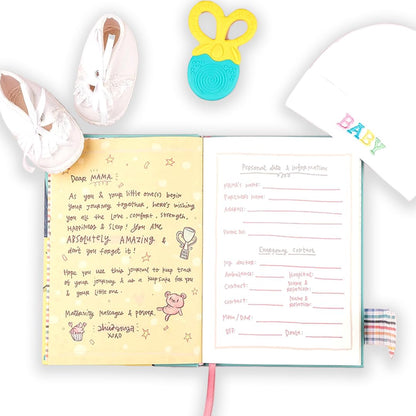 Dear MAMA,
As you & your little one(s) begin
your journey together, here's wishing
you all the love, comfort, strength,
HAPPINESS & SLEEP! YOU ARE
ABSOLUTELY AMAZING &
don't you forget it!
Hope you use this journal to keep track
of your journey & as a keepsake for you
& your little one.
Maternity messages & power,
XOXO
Personal data & information
MAMA's name:
Partner's name:
Address:
Phone no:
Emergency Contact
My doctor:
Ambulance: Hospital:
Contact: Name & relation:
Contact: Name & relation:
Mom/Dad:
Due:
BABY